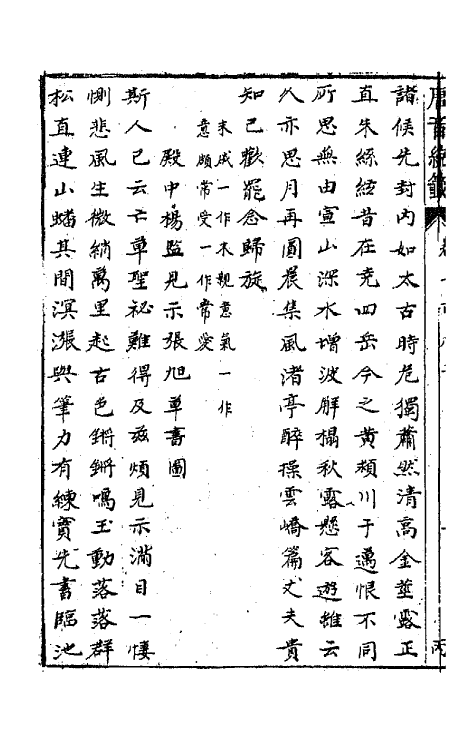 唐音統籤
諸侯先封内如太古時危獨蕭然清高金莖露正
直朱絲絃昔在堯四岳今之黄潁川于邁恨不同
所思無由宣山深水增波解榻秋露懸客遊雖云
久亦思月再圓晨集風渚亭醉操雲嶠篇丈夫貴
知己歡罷念歸旋
末成一作未親意氣一作
意頗常受一作常愛
殿中楊監見示張旭草書圖
斯人已云亡草聖祕難得及兹煩見示滿目一悽
惻悲風生微綃萬里起古色鏘鏘鳴玉動落落群
松直連山蟠其間溟漲與筆力有練實先書臨池